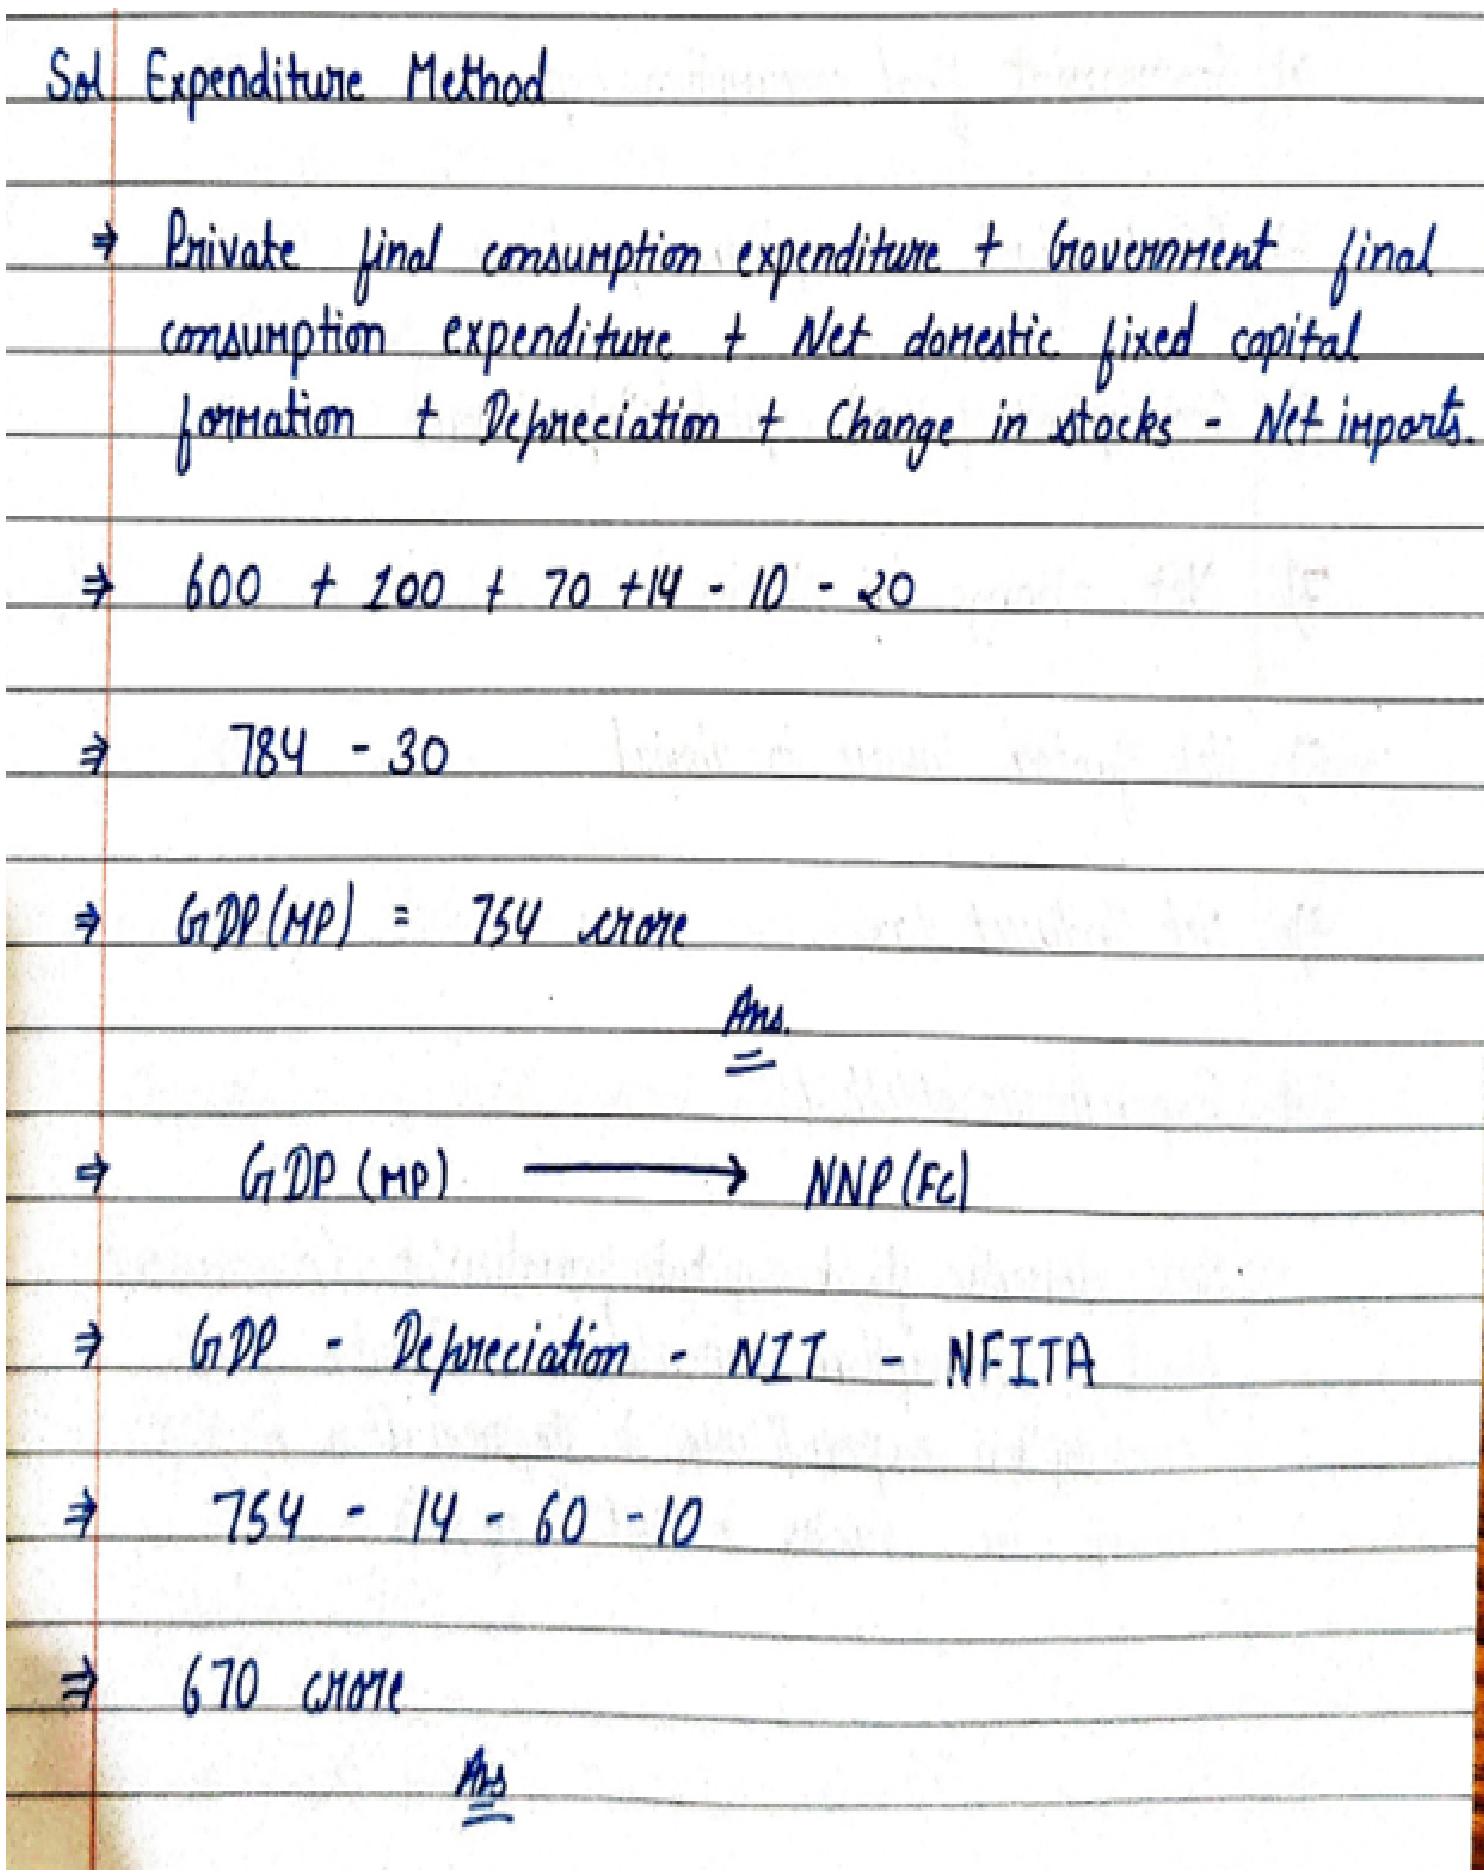 Sol Expenditure Method
⇒ Private final consumption expenditure + Government final
consumption expenditure + Net domestic fixed capital
formation + Depreciation + Change in stocks - Net imports.
⇒ 600 + 100 + 70 + 14 - 10 - 20
⇒ 784 - 30
⇒ GDP(MP) = 754 crore
Ans.
⇒ GDP (MP) ⟶ NNP (FC)
⇒ GDP - Depreciation - NIT - NFITA
⇒ 754 - 14 - 60 - 10
⇒ 670 crore
Ans